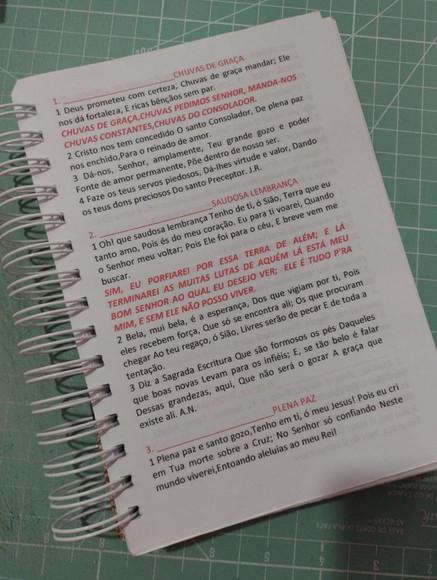 1. ____________________CHUVAS DE GRAÇA
1 Deus prometeu com certeza, Chuvas de graça mandar; Ele
nos dá fortaleza, E ricas bênçãos sem par.
CHUVAS DE GRAÇA,CHUVAS PEDIMOS SENHOR, MANDA-NOS
CHUVAS CONSTANTES,CHUVAS DO CONSOLADOR.
2 Cristo nos tem concedido O santo Consolador, De plena paz
nos enchido,Para o reinado de amor.
3 Dá-nos, Senhor, amplamente, Teu grande gozo e poder
Fonte de amor permanente, Põe dentro de nosso ser.
4 Faze os teus servos piedosos, Dá-lhes virtude e valor, Dando
os teus dons preciosos Do santo Preceptor. J.R.
2. ____________________SAUDOSA LEMBRANÇA
1 Oh! que saudosa lembrança Tenho de ti, ó Sião, Terra que eu
tanto amo, Pois és do meu coração. Eu para ti voarei, Quando
o Senhor meu voltar; Pois Ele foi para o céu, E breve vem me
buscar.
SIM, EU PORFIAREI POR ESSA TERRA DE ALÉM; E LÁ
TERMINAREI AS MUITAS LUTAS DE AQUÉM LÁ ESTÁ MEU
BOM SENHOR AO QUAL EU DESEJO VER; ELE É TUDO P'RA
MIM, E SEM ELE NÃO POSSO VIVER.
2 Bela, mui bela, é a esperança, Dos que vigiam por ti, Pois
eles recebem força, Que só se encontra ali; Os que procuram
chegar Ao teu regaço, ó Sião, Livres serão de pecar E de toda a
tentação.
3 Diz a Sagrada Escritura Que são formosos os pés Daqueles
que boas novas Levam para os infiéis; E, se tão belo é falar
Dessas grandezas, aqui, Que não será o gozar A graça que
existe ali. A.N.
3. ____________________PLENA PAZ
1 Plena paz e santo gozo,Tenho em ti, ó meu Jesus! Pois eu cri
em Tua morte sobre a Cruz; No Senhor só confiando Neste
mundo viverei,Entoando aleluias ao meu Rei!